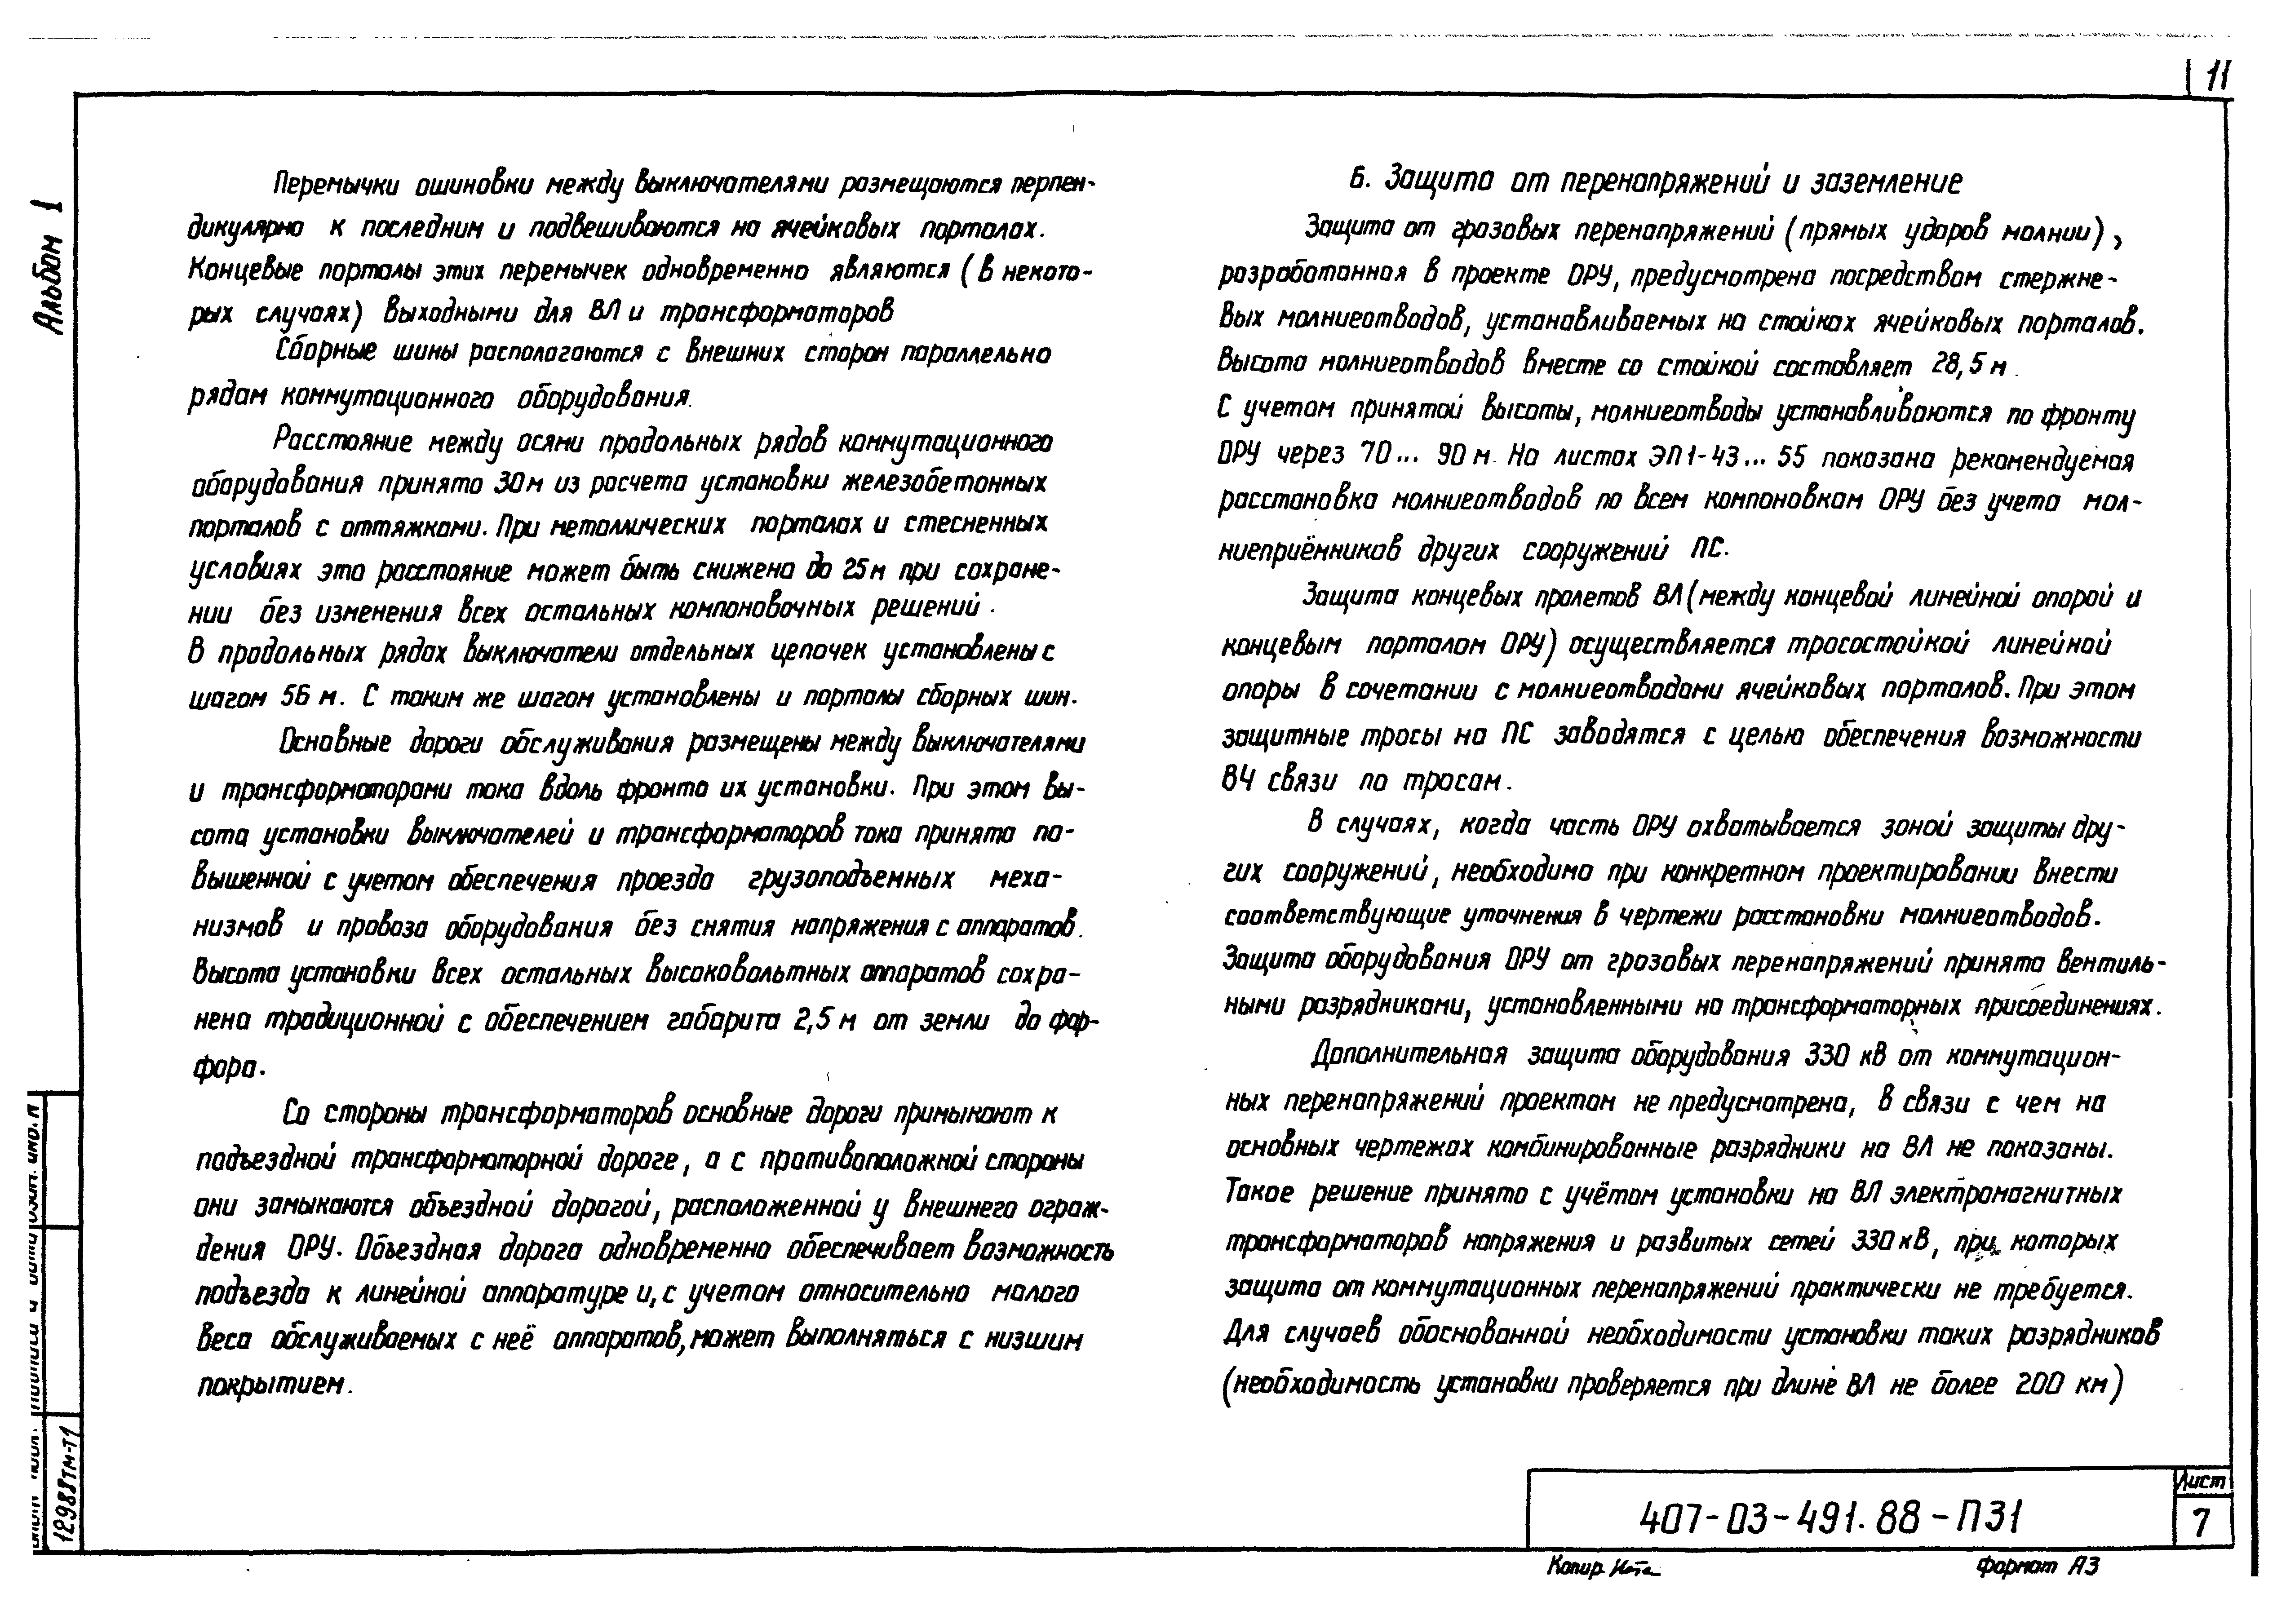 11
Альбом 1
Перемычки ошиновки между выключателями размещаются перпен-
дикулярно к последним и подвешиваются на ячейковых порталах.
Концевые порталы этих перемычек одновременно являются (в некото-
рых случаях) выходными для ВЛ и трансформаторов
Сборные шины располагаются с внешних сторон параллельно
рядам коммутационного оборудования.
Расстояние между осями продольных рядов коммутационного
оборудования принято 30м из расчета установки железобетонных
порталов с оттяжками. При металлических порталах и стесненных
условиях это расстояние может быть снижено до 25м при сохране-
нии без изменения всех остальных компоновочных решений.
В продольных рядах выключатели отдельных цепочек установлены с
шагом 56 м. С таким же шагом установлены и порталы сборных шин.
Основные дороги обслуживания размещены между выключателями
и трансформаторами тока вдоль фронта их установки. При этом вы-
сота установки выключателей и трансформаторов тока принята по-
вышенной с учетом обеспечения проезда грузоподъемных меха-
низмов и провоза оборудования без снятия напряжения с аппаратов.
Высота установки всех остальных высоковольтных аппаратов сохра-
нена традиционной с обеспечением габарита 2,5 м от земли до фар-
фора.
Со стороны трансформаторов основные дороги примыкают к
подъездной трансформаторной дороге, а с противоположной стороны
они замыкаются объездной дорогой, расположенной у внешнего ограж-
дения ОРУ. Объездная дорога одновременно обеспечивает возможность
подъезда к линейной аппаратуре и, с учетом относительно малого
веса обслуживаемых с неё аппаратов, может выполняться с низшим
покрытием.
6. Защита от перенапряжений и заземление
Защита от грозовых перенапряжений (прямых ударов молнии),
разработанная в проекте ОРУ, предусмотрена посредством стержне-
вых молниеотводов, устанавливаемых на стойках ячейковых порталов.
Высота молниеотводов вместе со стойкой составляет 28,5 м.
С учетом принятой высоты, молниеотводы устанавливаются по фронту
ОРУ через 70... 90 м. На листах ЭП1-43... 55 показана рекомендуемая
расстановка молниеотводов по всем компоновкам ОРУ без учета мол-
ниеприёмников других сооружений ПС.
Защита концевых пролетов ВЛ (между концевой линейной опорой и
концевым порталом ОРУ) осуществляется тросостойкой линейной
опоры в сочетании с молниеотводами ячейковых порталов. При этом
защитные тросы на ПС заводятся с целью обеспечения возможности
ВЧ связи по тросам.
В случаях, когда часть ОРУ охватывается зоной защиты дру-
гих сооружений, необходимо при конкретном проектировании внести
соответствующие уточнения в чертежи расстановки молниеотводов.
Защита оборудования ОРУ от грозовых перенапряжений принята вентиль-
ными разрядниками, установленными на трансформаторных присоединениях.
Дополнительная защита оборудования 330 кВ от коммутацион-
ных перенапряжений проектом не предусмотрена, в связи с чем на
основных чертежах комбинированные разрядники на ВЛ не показаны.
Такое решение принято с учётом установки на ВЛ электромагнитных
трансформаторов напряжения и развитых сетей 330 кВ, при которых
защита от коммутационных перенапряжений практически не требуется.
Для случаев обоснованной необходимости установки таких разрядников
(необходимость установки проверяется при длине ВЛ не более 200 км)
12988тм-т1
407-03-491.88-ПЗ1
Лист
7
Копир.
Формат А3